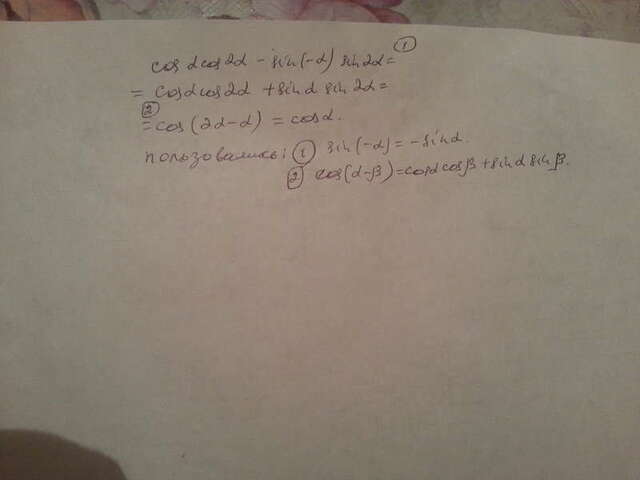 cos α cos 2α - sin(-α) sin 2α = ①
= cos α cos 2α + sin α sin 2α =
② = cos(2α-α) = cos α.
пользовались: ① sin(-α) = -sin α.
② cos(α-β) = cos α cos β + sin α sin β.